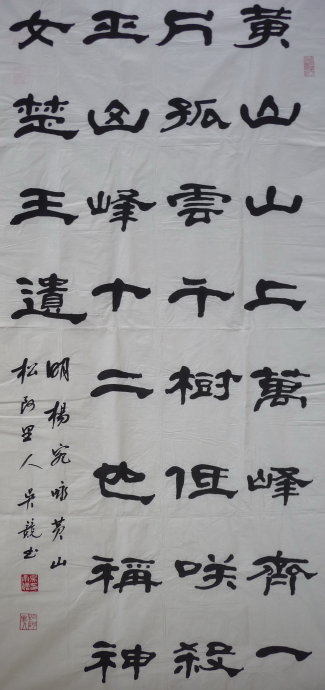 黄山山上萬峰齊一
片孤雲千樹低咲殺
巫山峰十二也稱神
女楚王遺
明楊宛咏黄山
松阿里人吴競书